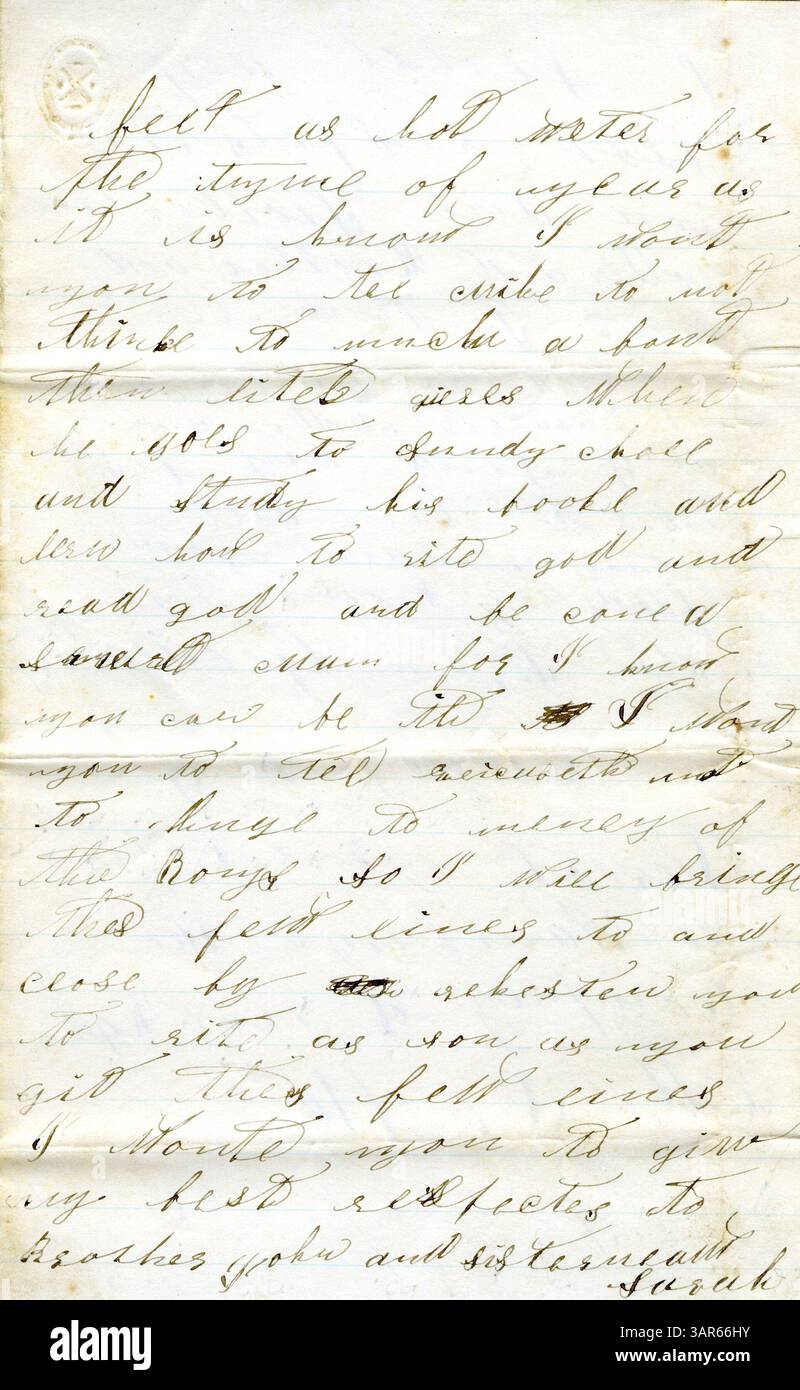 felt as hot weter for
the tyme of year as
it is know I wont
you to tel mike to not
thinke to much a bout
them litel gierls when
he goes to Sundy choll
and study his booke and
lern how to rite god and
read god and be come a
man for I know
you can be it I wont
you to tel not
to thinge to meney of
the Boys so I will bringe
thes few lines to and
close by rekesten you
to rite as son as you
git thes few lines
I wonte you to give
my best resfectes to
Brother John and sister
Sarah
alamy
3AR66HY
www.alamy.com